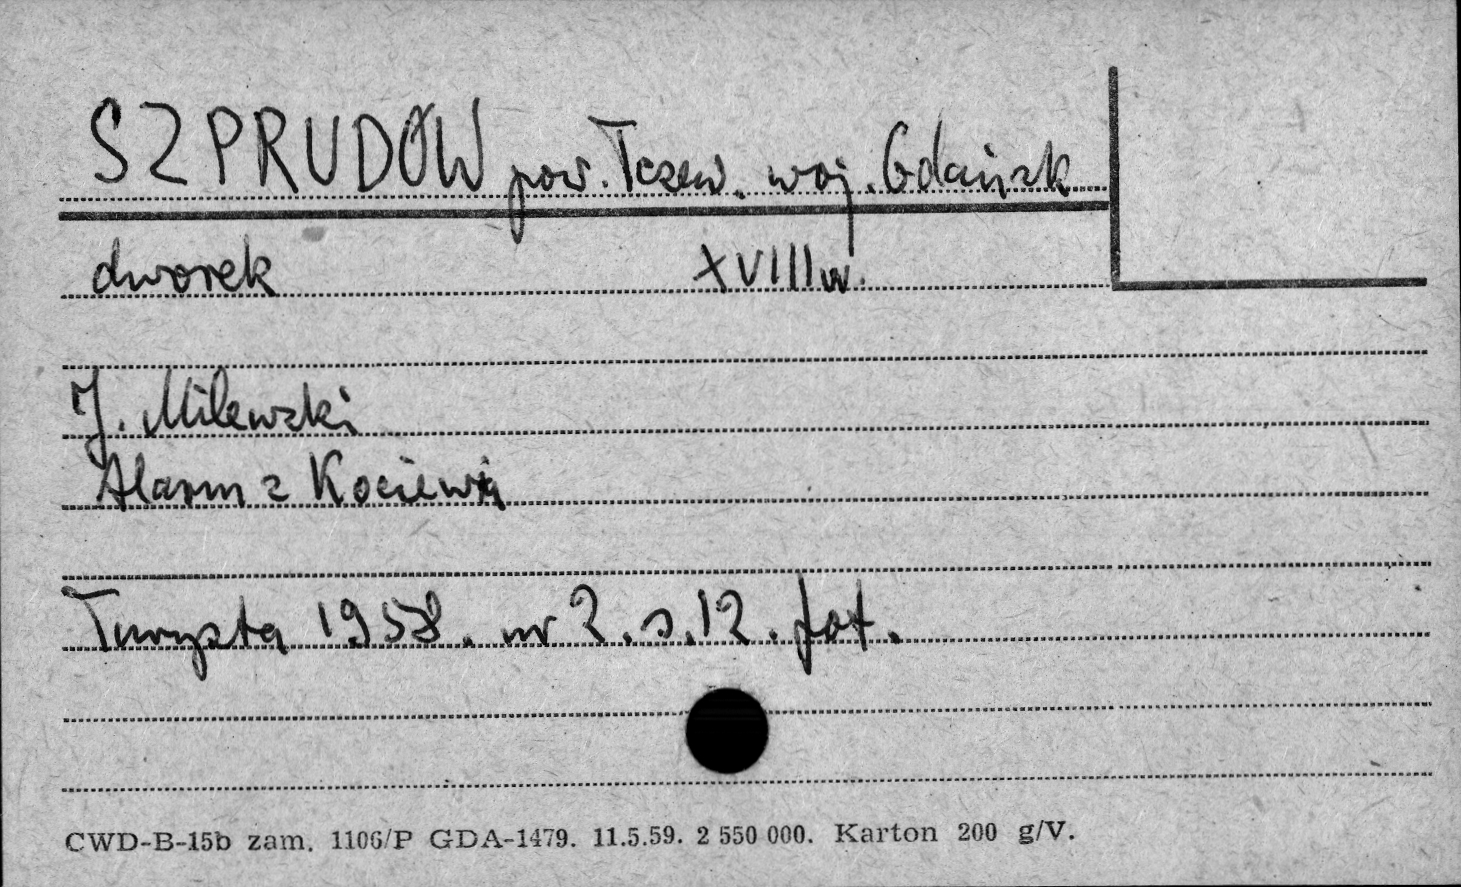 SZPRUDÓW pow. Tczew. woj. Gdańsk
dworek XVIII w.
J. Milewski
Alarm z Kociewia
Turysta 1958. nr 2. s. 12. fot.
CWD-B-15b zam. 1106/P GDA-1479. 11.5.59. 2 550 000. Karton 200 g/V.